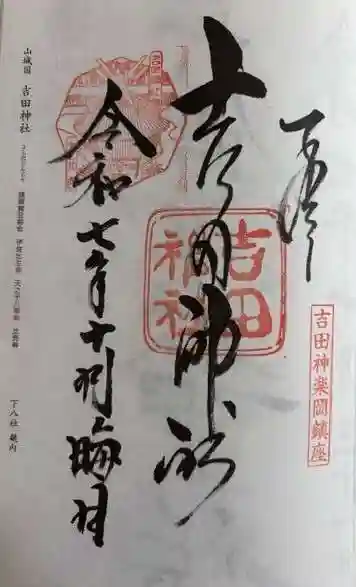 奉拝
吉田神社
吉田神社
吉田神楽岡鎮座
令和七年十月晦日
山城国 吉田神社
下八社 境内